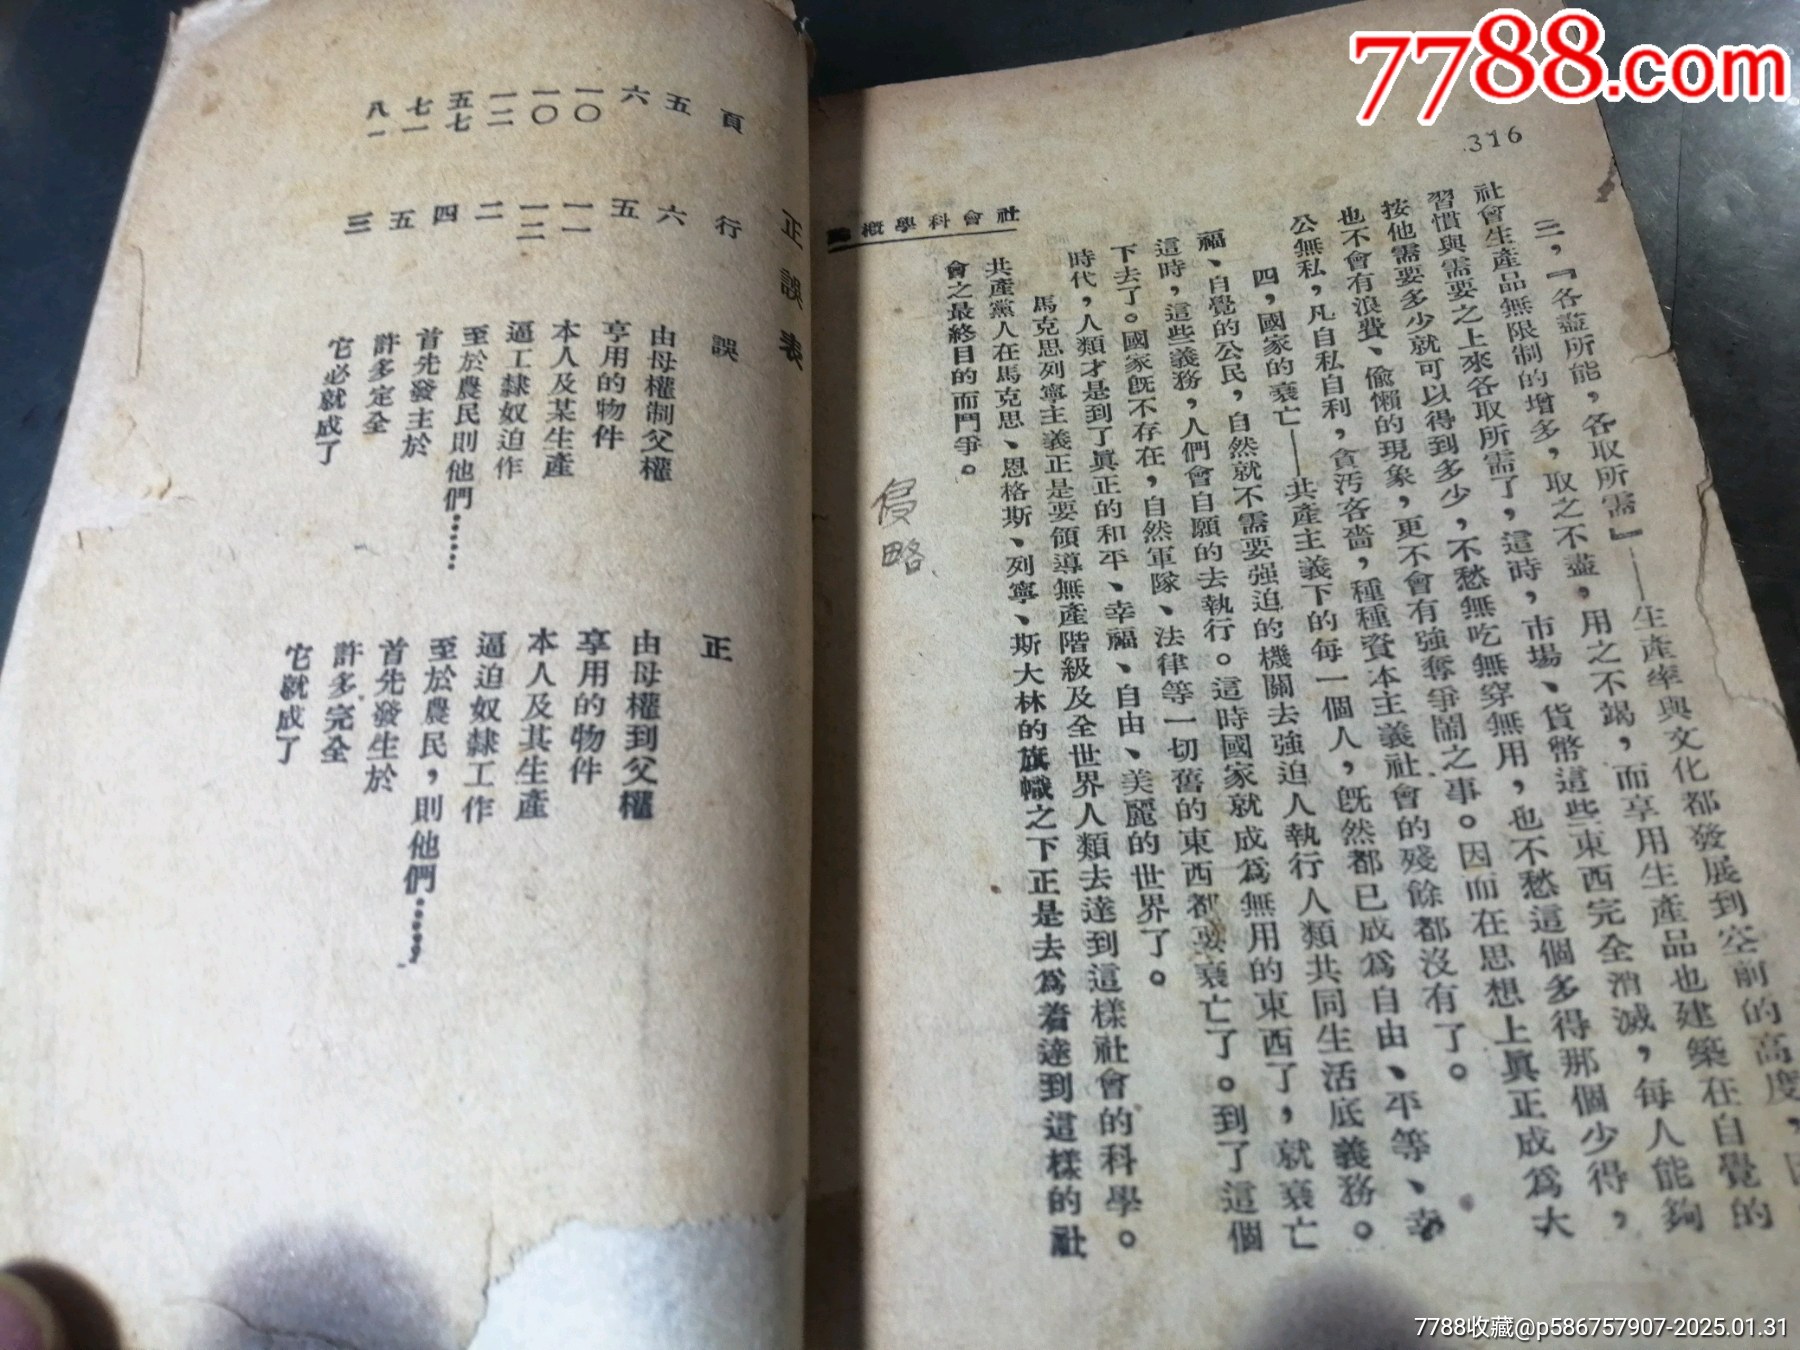 7788.com
316
社會科學概
三，『各盡所能，各取所需』——生產率與文化都發展到空前的高度，
社會生產品無限制的增多，取之不盡，用之不竭，而享用生產品也建築在自覺的
習慣與需要之上來各取所需了，這時，市場、貨幣這些東西完全消滅，每人能夠
按他需要多少就可以得到多少，不愁無吃無穿無用，也不愁這個多得那個少得，
也不會有浪費、偸懶的現象，更不會有強奪爭鬧之事。因而在思想上眞正成爲大
公無私，凡自私自利，貪汚吝嗇，種種資本主義社會的殘餘都沒有了。
四，國家的衰亡——共產主義下的每一個人，旣然都已成爲自由、平等、幸
福、自覺的公民，自然就不需要强迫的機關去強迫人執行人類共同生活底義務。
這時，這些義務，人們會自願的去執行。這時國家就成爲無用的東西了，就衰亡
下去了。國家旣不存在，自然軍隊、法律等一切舊的東西都要衰亡了。到了這個
時代，人類才是到了眞正的和平、幸福、自由、美麗的世界了。
馬克思列寧主義正是要領導無產階級及全世界人類去達到這樣社會的科學。
共產黨人在馬克思、恩格斯、列寧、斯大林的旗幟之下正是去爲着達到這樣的社
會之最終目的而鬥爭。
侵略
正誤表
頁 行 誤 正
五 六 由母權制父權 由母權到父權
六 五 亨用的物件 享用的物件
一〇 一一 本人及某生產 本人及其生產
一〇 一二 逼工隸奴迫作 逼迫奴隸工作
一二 二 至於農民則他們…… 至於農民，則他們……，
五七 四 首先發主於 首先發生於
七一 五 許多定全 許多完全
八一 三 它必就成了 它就成了
7788收藏@p586757907-2025.01.31